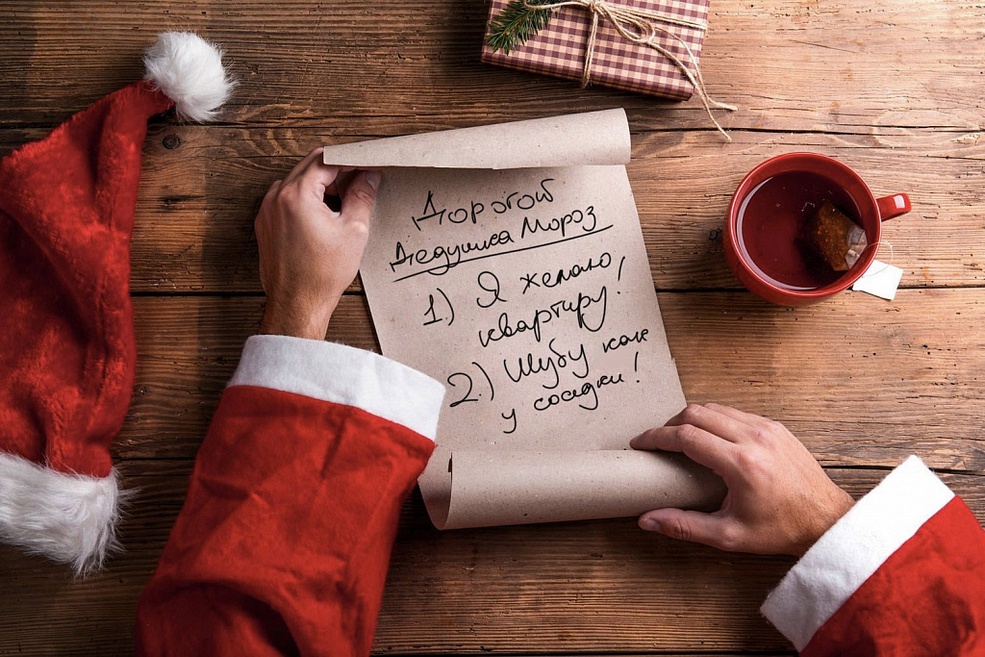 Дорогой
Дедушка Мороз
1.) Я желаю
квартиру!
2.) Шубу как
у соседки!